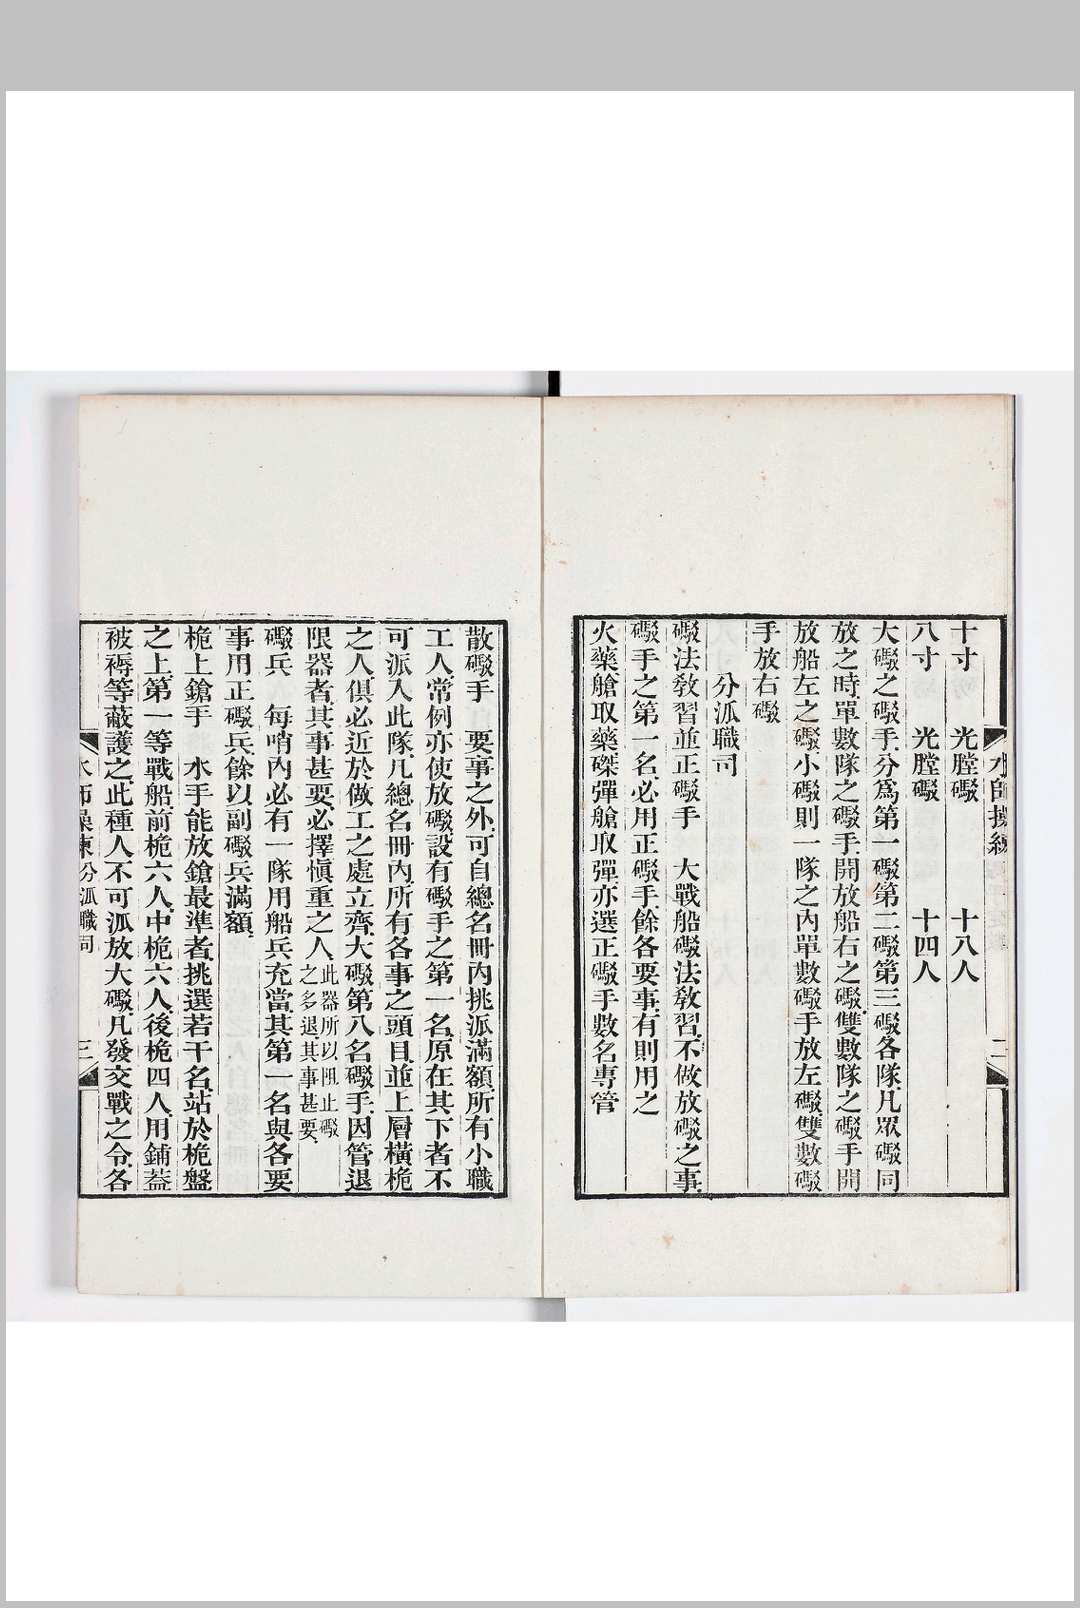 水師操練
二
十寸 光膛礮 十八人
八寸 光膛礮 十四人
大礮之礮手分爲第一礮第二礮第三礮各隊凡眾礮同
放之時單數隊之礮手開放船右之礮雙數隊之礮手開
放船左之礮小礮則一隊之內單數礮手放左礮雙數礮
手放右礮
分派職司
礮法敎習並正礮手 大戰船礮法敎習不做放礮之事
礮手之第一名必用正礮手餘各要事有則用之
火藥艙取藥磔彈艙取彈亦選正礮手數名專管
散礮手 要事之外可自總名冊內挑派滿額所有小職
工人常例亦使放礮設有礮手之第一名原在其下者不
可派入此隊凡總名冊內所有各事之頭目並上層橫桅
之人俱必近於做工之處立齊大礮第八名礮手因管退
限器者其事甚要必擇愼重之人此器所以阻止礮
之多退其事甚要
礮兵 每哨內必有一隊用船兵充當其第一名與各要
事用正礮兵餘以副礮兵滿額
桅上鎗手 水手能放鎗最準者挑選若干名站於桅盤
之上第一等戰船前桅六人中桅六人後桅四人用鋪蓋
被褥等蔽護之此種人不可派放大礮凡發交戰之令各
水師操練 分派職司
三